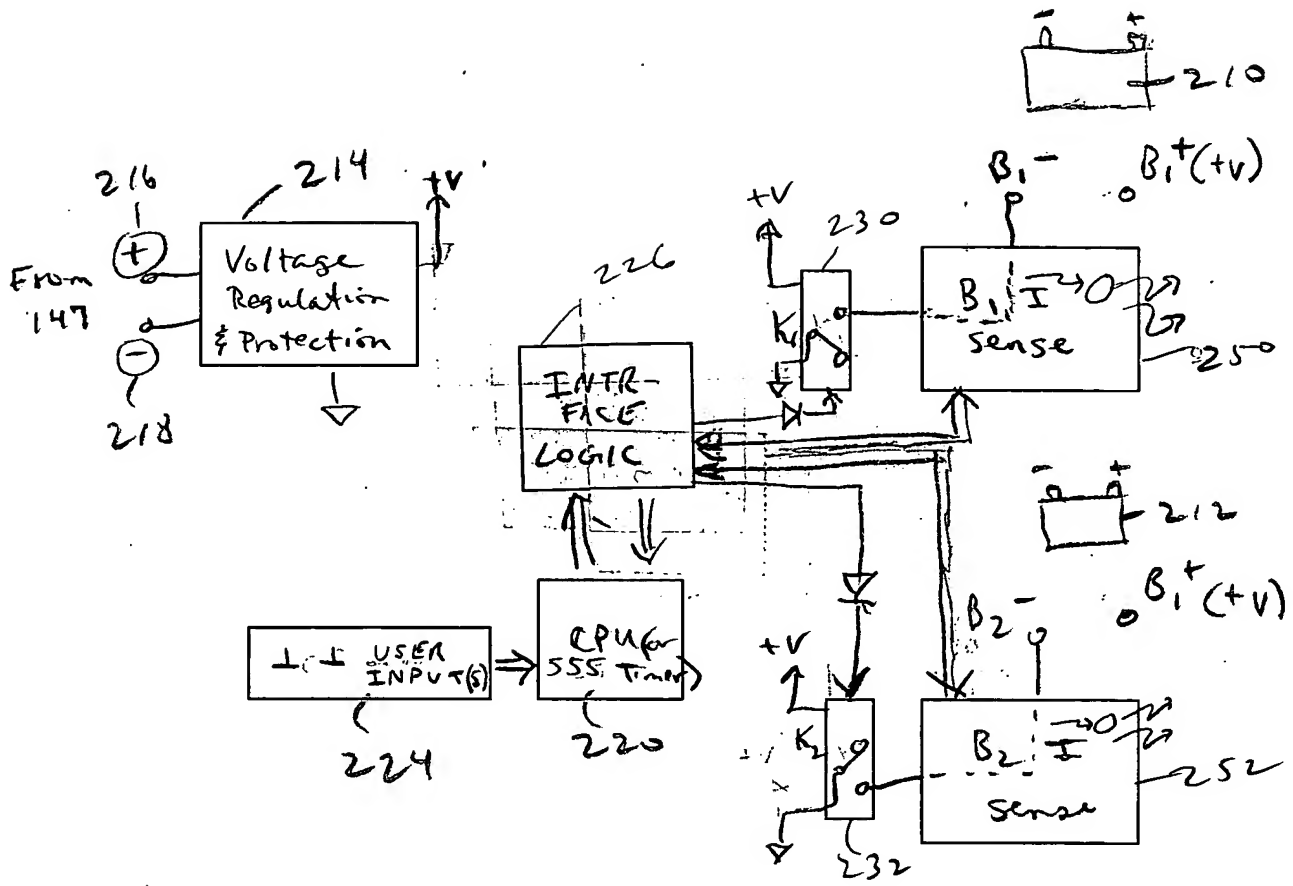 - +
210
B₁ - B₁⁺ (+V)
216
214
+V
+
From
147
-
218
Voltage
Regulation
& Protection
226
INTR-
FACE
LOGIC
+V
230
K₁
B₁ I
sense
250
- +
212
B₂ - B₁⁺ (+V)
USER
INPUT(S)
224
CPU (or
555 Timer)
220
+V
K₂
232
B₂ I
sense
252